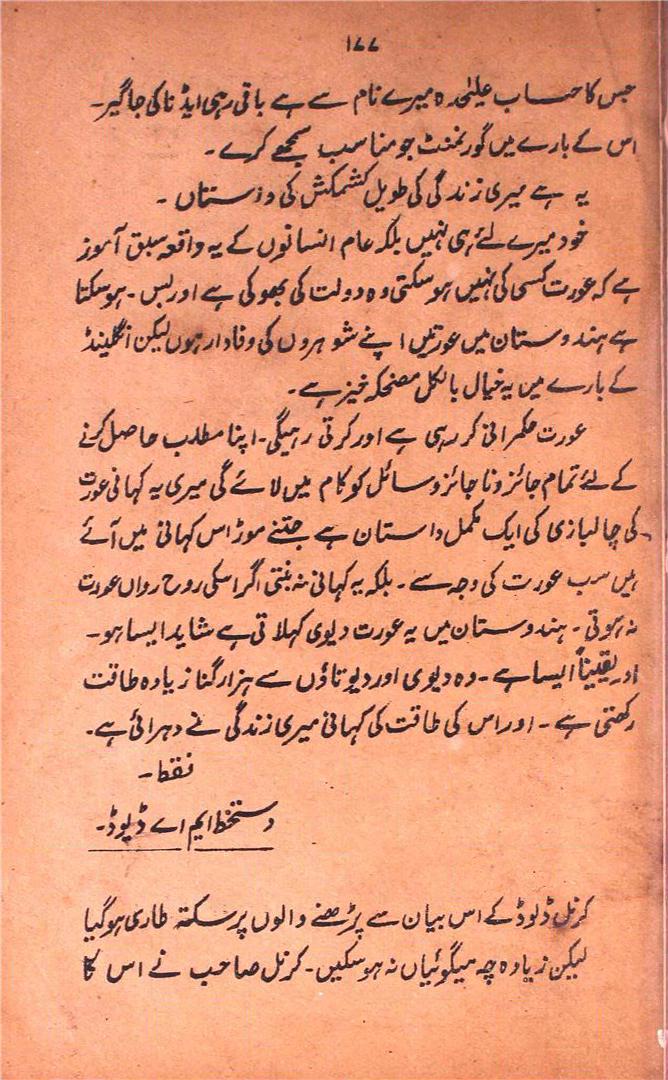 ۱۷۷
جس کا حساب علیٰحدہ میرے نام سے ہے باقی رہی ایڈنا کی جاگیر۔
اس کے بارے میں گورنمنٹ جو مناسب سمجھے کرے۔
یہ ہے میری زندگی کی طویل کشمکش کی داستاں۔
خود میرے لئے ہی نہیں بلکہ عام انسانوں کے یہ واقعہ سبق آموز
ہے کہ عورت کسی کی نہیں ہو سکتی وہ دولت کی بھوکی ہے اور بس۔ ہو سکتا
ہے ہندوستان میں عورتیں اپنے شوہروں کی وفادار ہوں لیکن انگلینڈ
کے بارے میں یہ خیال بالکل مضحکہ خیز ہے۔
عورت حکمرانی کر رہی ہے اور کرتی رہیگی۔ اپنا مطلب حاصل کرنے
کے لئے تمام جائز و ناجائز وسائل کو کام میں لائے گی میری یہ کہانی عورت
کی چالبازی کی ایک مکمل داستان ہے جتنے موڑ اس کہانی میں آئے
ہیں سب عورت کی وجہ سے۔ بلکہ یہ کہانی نہ بنتی اگر اسکی روح رواں عورت
نہ ہوتی۔ ہندوستان میں یہ عورت دیوی کہلاتی ہے شاید ایسا ہو۔
اور یقیناً ایسا ہے۔ وہ دیوی اور دیوتاؤں سے ہزار گنا زیادہ طاقت
رکھتی ہے۔ اور اس کی طاقت کی کہانی میری زندگی نے دہرائی ہے۔
فقط۔
دستخط ایم اے ڈیوڈ۔
کرنل ڈیوڈ کے اس بیان سے پڑھنے والوں پر سکتہ طاری ہو گیا
لیکن زیادہ چہ میگوئیاں نہ ہو سکیں۔ کرنل صاحب نے اس کا